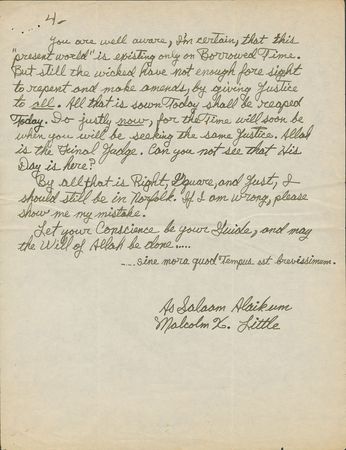 4-
You are well aware, I'm certain, that this
"present world" is existing only on Borrowed Time.
But still the wicked have not enough fore sight
to repent and make amends, by giving Justice
to all. All that is sown Today shall be reaped
Today. Do justly now, for the Time will soon be
when you will be seeking the same Justice. Allah
is the Final Judge. Can you not see that His
Day is here?
By all that is Right, Square, and Just, I
should still be in Norfolk. If I am wrong, please
show me my mistake.
Let your Conscience be your Guide, and may
the Will of Allah be done.....
....sine mora quod Tempus est brevissimum.
As Salaam Alaikum
Malcolm X. Little